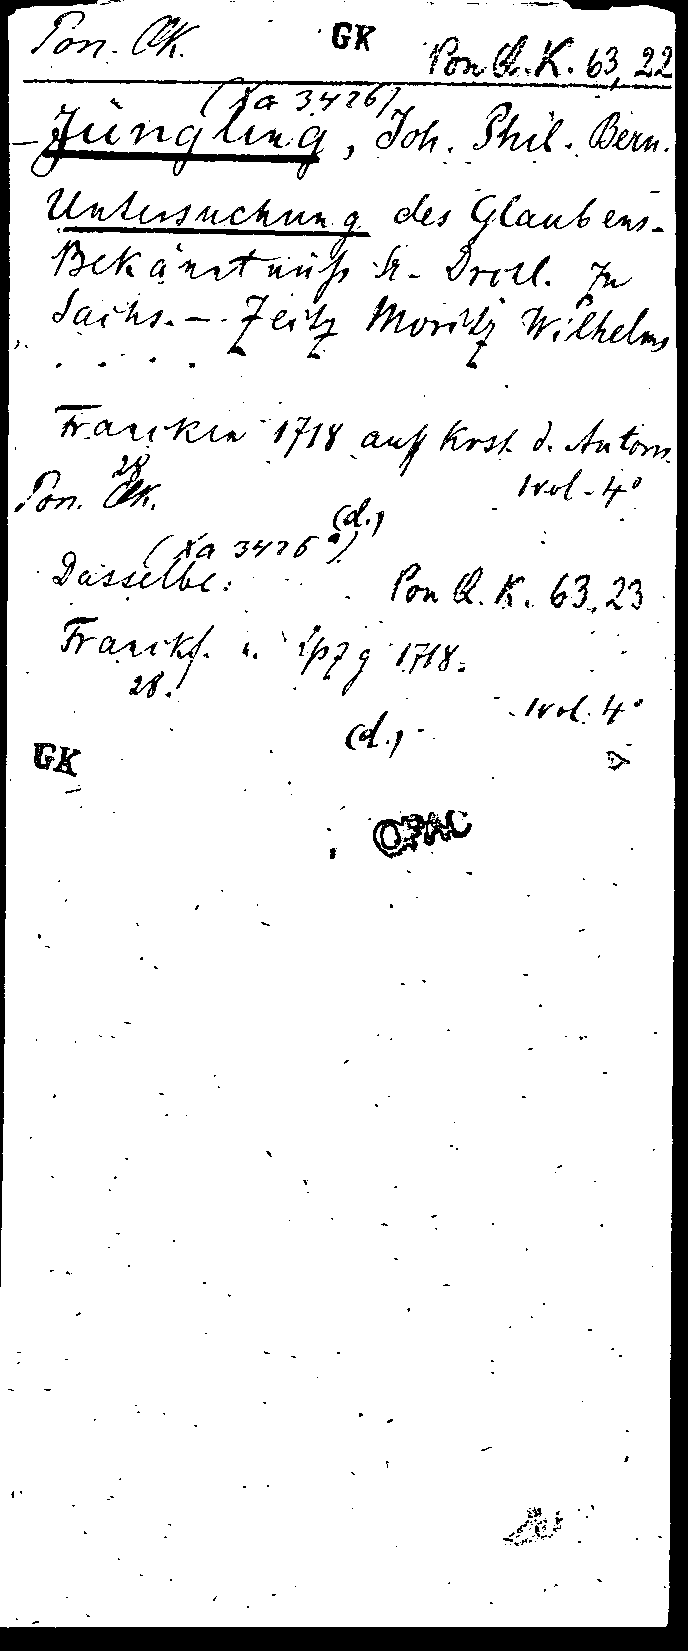 Pon. QK. GK Pon Q. K. 63, 22
(Xa 3426)
Jüngling, Joh. Phil. Bern.
Untersuchung des Glaubens-
Bekäntnüß Sr. Drchl. zu
Sachs. - Zeitz Moritz Wilhelms
. . . .
Francken 1718 auff Kost. d. Autoris
28
Pon. QK. 1 vol. 4°
(d.)
(Xa 3426 a)
Dasselbe: Pon Q. K. 63, 23
Franckf. u. Lpzg 1718.
28. 1 vol. 4°
(d.)
GK
OPAC